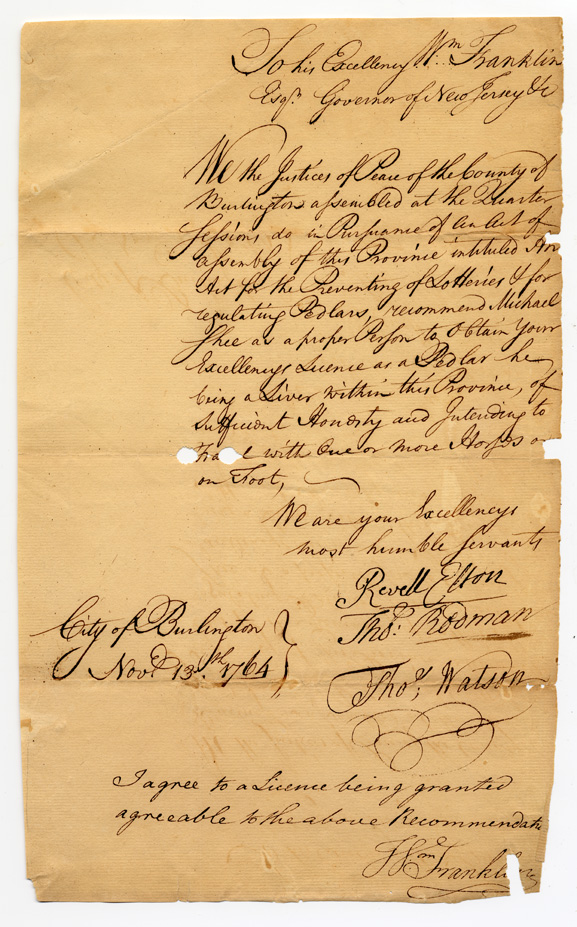 To his Excellency Wm. Franklin
Esqr. Governor of New Jersey &c
We the Justices of Peace of the County of
Burlington assembled at the Quarter
Sessions do in Pursuance of An Act of
Assembly of this Province intituled An
Act for the Preventing of Lotteries & for
regulating Pedlars, recommend Michael
Shee as a proper Person to Obtain Your
Excellencys Licence as a Pedlar he
being a Liver within this Province, of
sufficient Honesty and Intending to
with One or more Horses or
on Foot,
We are your Excellencys
most humble Servants
Revell Elton
Thos: Rodman
City of Burlington
Novr. 13th. 1764
Thos, Watson
I agree to a Licence being granted
agreeable to the above Recommendati
Wm Franklin